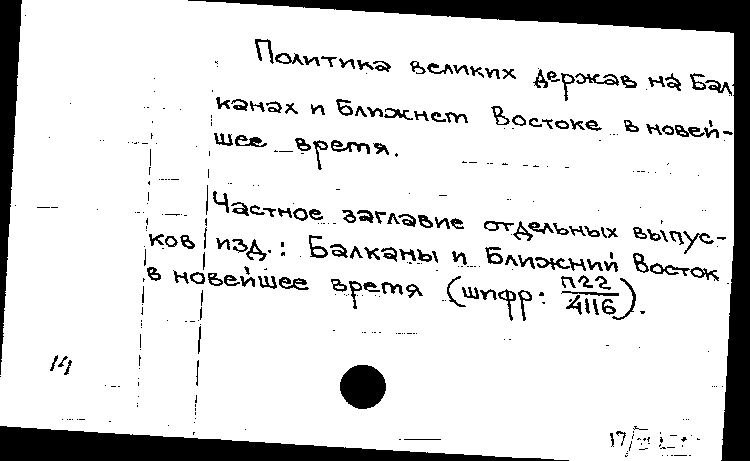 Политика великих держав на Бал
канах и Ближнем Востоке в новей-
шее время.
Частное заглавие отдельных выпус-
ков изд.: Балканы и Ближний Восток
в новейшее время (шифр: П22/4116).
14
17/